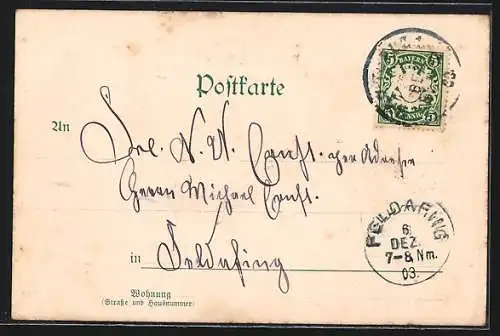 BAYERN
5 5
PFENNIG
Postkarte
An
Frl. N. N. per Adresse
Herrn Michael
in Feldafing
FELDAFING
6
DEZ.
7-8 Nm.
03.
Wohnung
(Straße und Hausnummer)